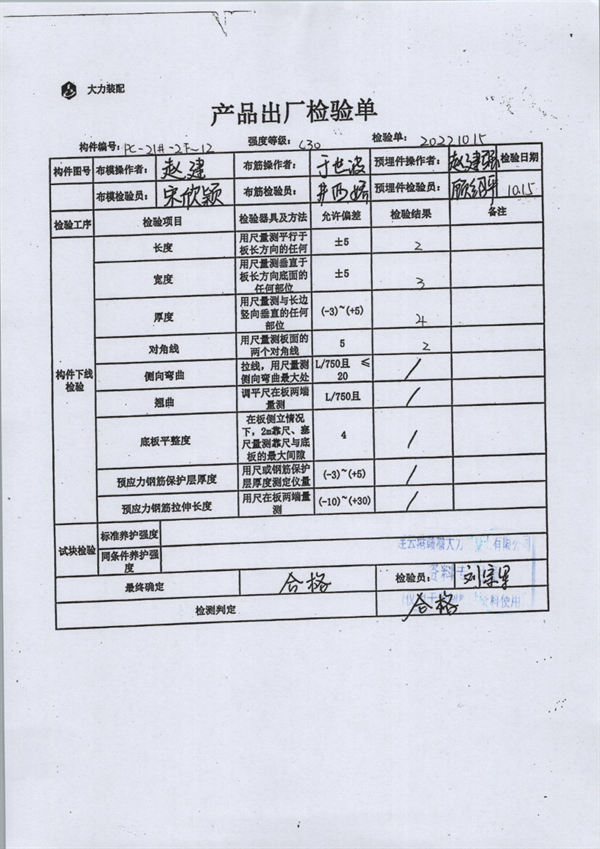 大力装配
产品出厂检验单
构件编号: PC-21#-2F-12 强度等级: C30 检验单: 20221015
构件图号 布模操作者: 赵建 布筋操作者: 于世波 预埋件操作者: 赵建强 检验日期
布模检验员: 宋欣颖 布筋检验员: 预埋件检验员: 1015
检验工序 检验项目 检验器具及方法 允许偏差 检验结果 备注
构件下线检验
长度 用尺量测平行于板长方向的任何 ±5 2
宽度 用尺量测垂直于板长方向底面的任何部位 ±5 3
厚度 用尺量测与长边竖向垂直的任何部位 (-3)~(+5) 4
对角线 用尺量测板面的两个对角线 5 2
侧向弯曲 拉线，用尺量测侧向弯曲最大处 L/750且 ≤20 /
翘曲 调平尺在板两端量测 L/750且 /
底板平整度 在板侧立情况下，2m靠尺、塞尺量测靠尺与底板的最大间隙 4 /
预应力钢筋保护层厚度 用尺或钢筋保护层厚度测定仪量 (-3)~(+5) /
预应力钢筋拉伸长度 用尺在板两端量测 (-10)~(+30) /
试块检验 标准养护强度
同条件养护强度
最终确定 合格 检验员:
检测判定 合格
有限公司
资料使用